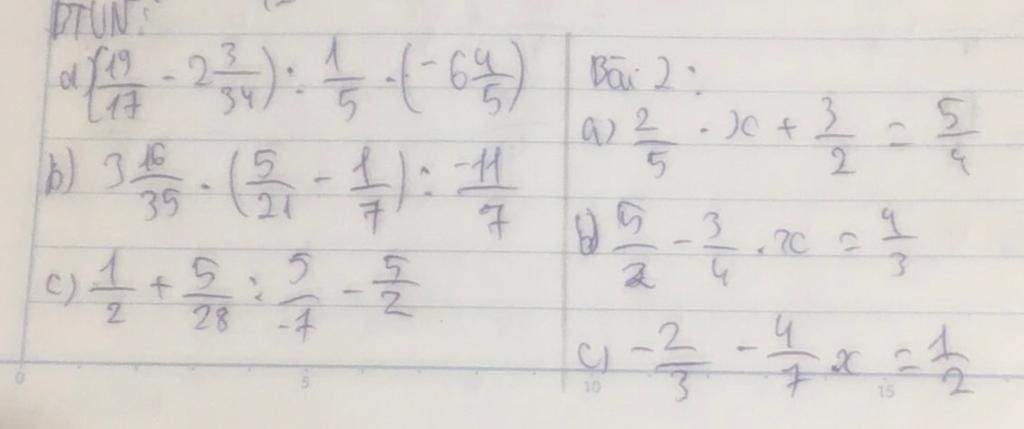 DTUN:
a) (19/17 - 2 3/34) : 1/5 . (-6 4/5)
b) 3 16/35 . (5/21 - 1/7) : -11/7
c) 1/2 + 5/28 : 5/-7 - 5/2
Bài 2:
a) 2/5 . x + 3/2 = 5/4
b) 5/2 - 3/4 . x = 4/3
c) -2/3 - 4/7 . x = 1/2
0 5 10 15